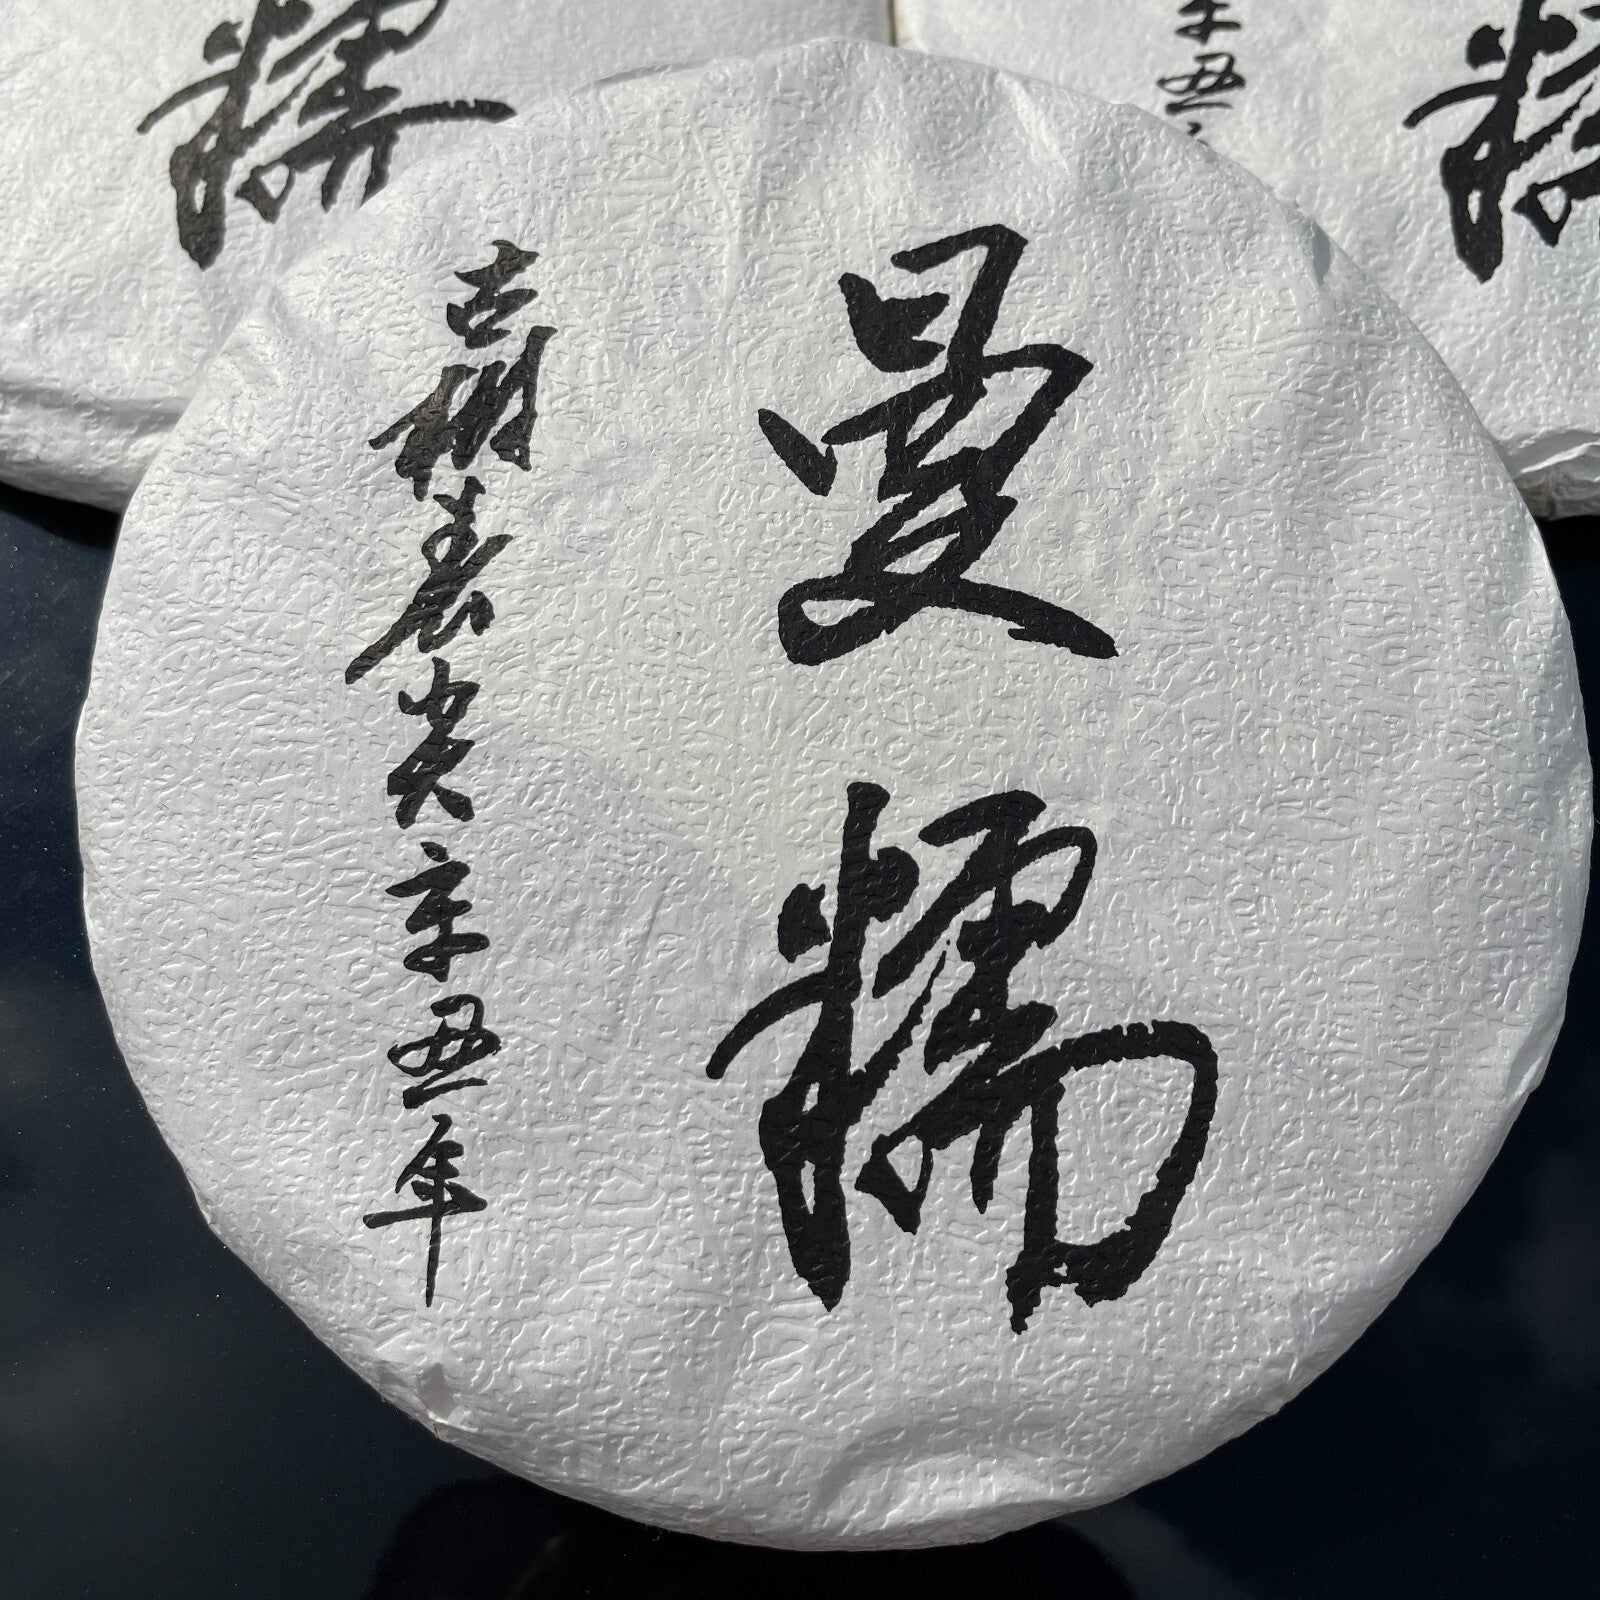 曼糯
古树春尖 辛丑年
糯
糯
辛丑